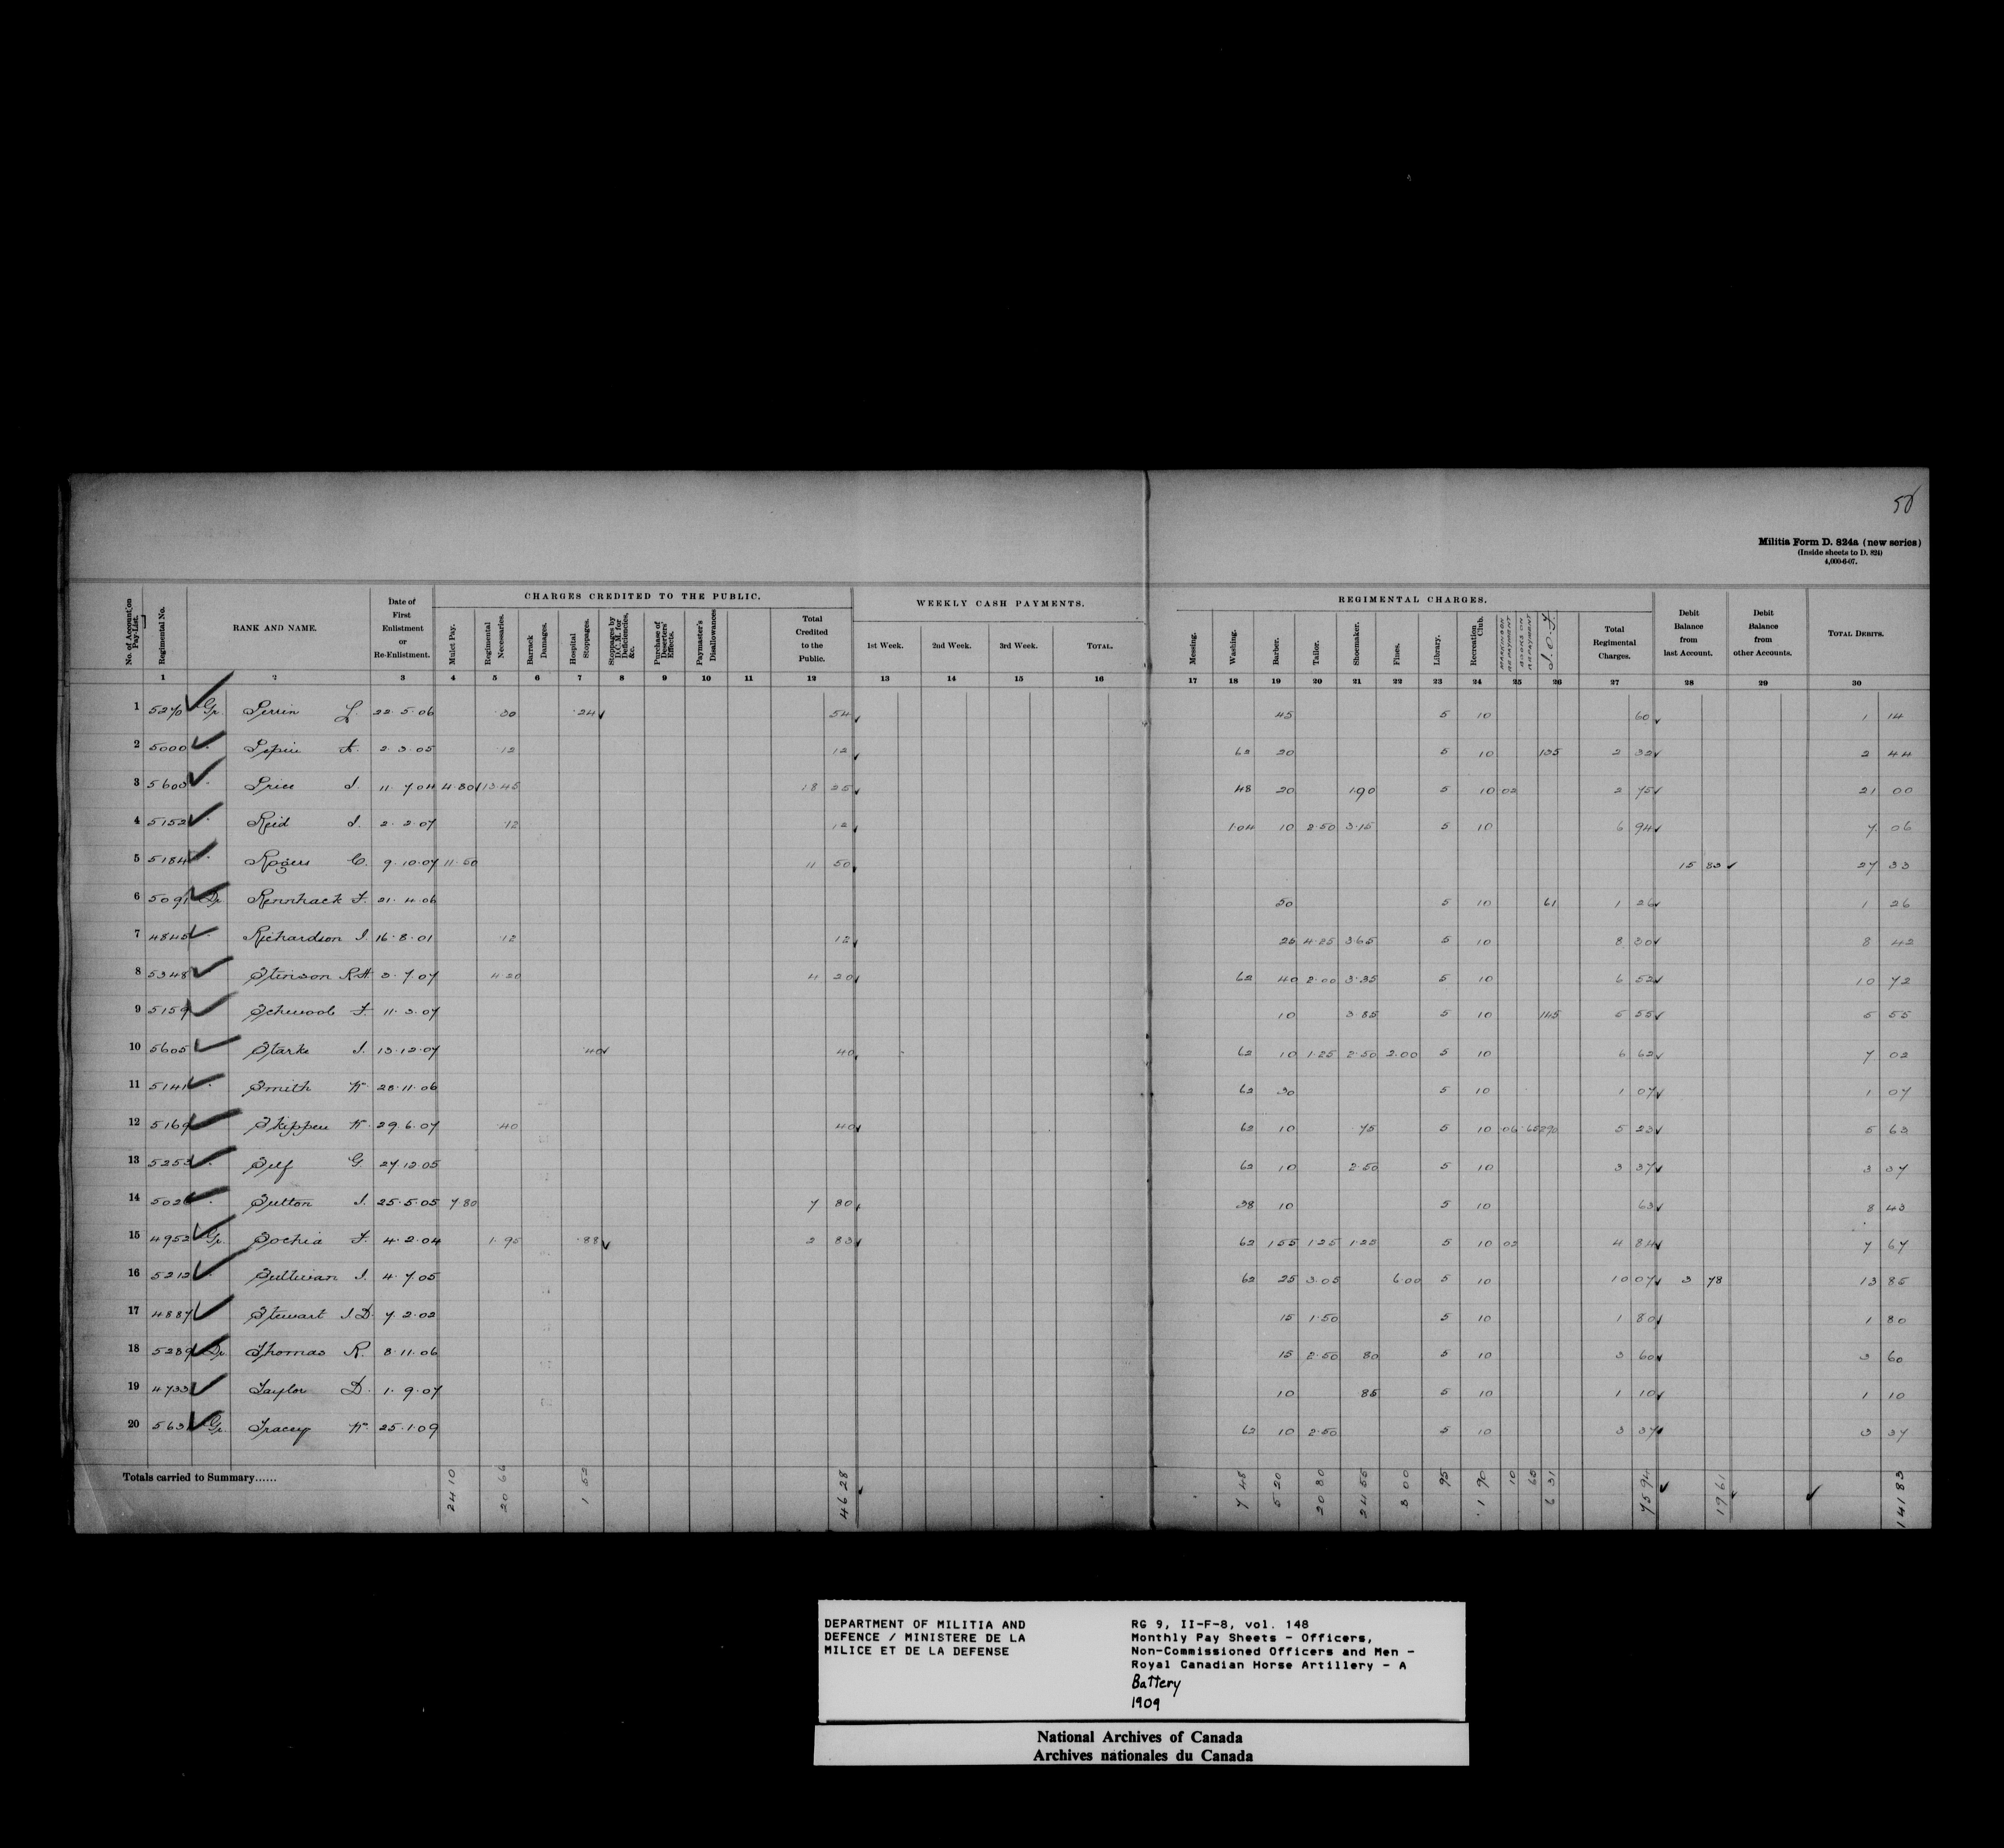 50
Militia Form D. 824a (new series)
(Inside sheets to D. 824)
4,000-6-07.
CHARGES CREDITED TO THE PUBLIC. WEEKLY CASH PAYMENTS. REGIMENTAL CHARGES.
No. of Account on Pay-List. Regimental No. RANK AND NAME. Date of First Enlistment or Re-Enlistment. Mulct Pay. Regimental Necessaries. Barrack Damages. Hospital Stoppages. Stoppages by D.C.M. for Deficiencies, &c. Purchase of Deserters' Effects. Paymaster's Disallowances Total Credited to the Public. 1st Week. 2nd Week. 3rd Week. TOTAL. Messing. Washing. Barber. Tailor. Shoemaker. Fines. Library. Recreation Club. REPAYMENT BOOKS ON REPAYMENT Total Regimental Charges. Debit Balance from last Account. Debit Balance from other Accounts. TOTAL DEBITS.
1 2 3 4 5 6 7 8 9 10 11 12 13 14 15 16 17 18 19 20 21 22 23 24 25 26 27 28 29 30
1 5270 Gr. Perrin L. 22.5.06 .30 .24 54 45 5 10 60 1 14
2 5000 " Pepin A. 2.3.05 .12 12 62 20 5 10 135 2 32 2 44
3 5603 " Price J. 11.7.04 4.80 13.45 18 25 48 20 1.90 5 10 02 2 75 21 00
4 5152 " Reid J. 2.2.07 .12 12 1.04 10 2.50 3.15 5 10 6 94 7 06
5 5184 " Rogers C. 9.10.07 11.50 11 50 15 83 27 33
6 5091 Dr. Rennhack F. 21.4.06 50 5 10 61 1 26 1 26
7 4845 " Richardson J. 16.8.01 .12 12 25 4.25 3.65 5 10 8 30 8 42
8 5348 Stinson R.H 3.7.07 4.20 4 20 62 40 2.00 3.35 5 10 6 52 10 72
9 5159 F. 11.3.07 10 3.85 5 10 145 5 55 5 55
10 5605 Starke J. 13.12.07 .40 40 62 10 1.25 2.50 2.00 5 10 6 62 7 02
11 5141 " Smith W. 28.11.06 62 30 5 10 1 07 1 07
12 5169 Skippen W. 29.6.07 .40 40 62 10 75 5 10 06 65 290 5 23 5 63
13 5253 " Self G. 27.12.05 62 10 2.50 5 10 3 37 3 37
14 502 " Sutton J. 25.5.05 7.80 7 80 38 10 5 10 63 8 43
15 4952 Gr. Sochia F. 4.2.04 1.95 .88 2 83 62 155 1.25 1.25 5 10 02 4 84 7 67
16 5212 " Sullivan J. 4.7.05 62 25 3.05 6.00 5 10 10 07 3 78 13 85
17 4887 Stewart J.D. 7.2.02 15 1.50 5 10 1 80 1 80
18 5289 Dr. Thomas R. 8.11.06 15 2.50 80 5 10 3 60 3 60
19 4733 Taylor D. 1.9.07 10 85 5 10 1 10 1 10
20 563 Gr. Tracey W. 25.1.09 62 10 2.50 5 10 3 37 3 37
Totals carried to Summary...... 24 10 20 66 1 52 46 28 7 48 5 20 20 80 24 55 8 00 95 1 90 10 65 6 31 75 94 19 61 141 83
DEPARTMENT OF MILITIA AND
DEFENCE / MINISTERE DE LA
MILICE ET DE LA DEFENSE
RG 9, II-F-8, vol. 148
Monthly Pay Sheets - Officers,
Non-Commissioned Officers and Men -
Royal Canadian Horse Artillery - A
Battery
1909
National Archives of Canada
Archives nationales du Canada